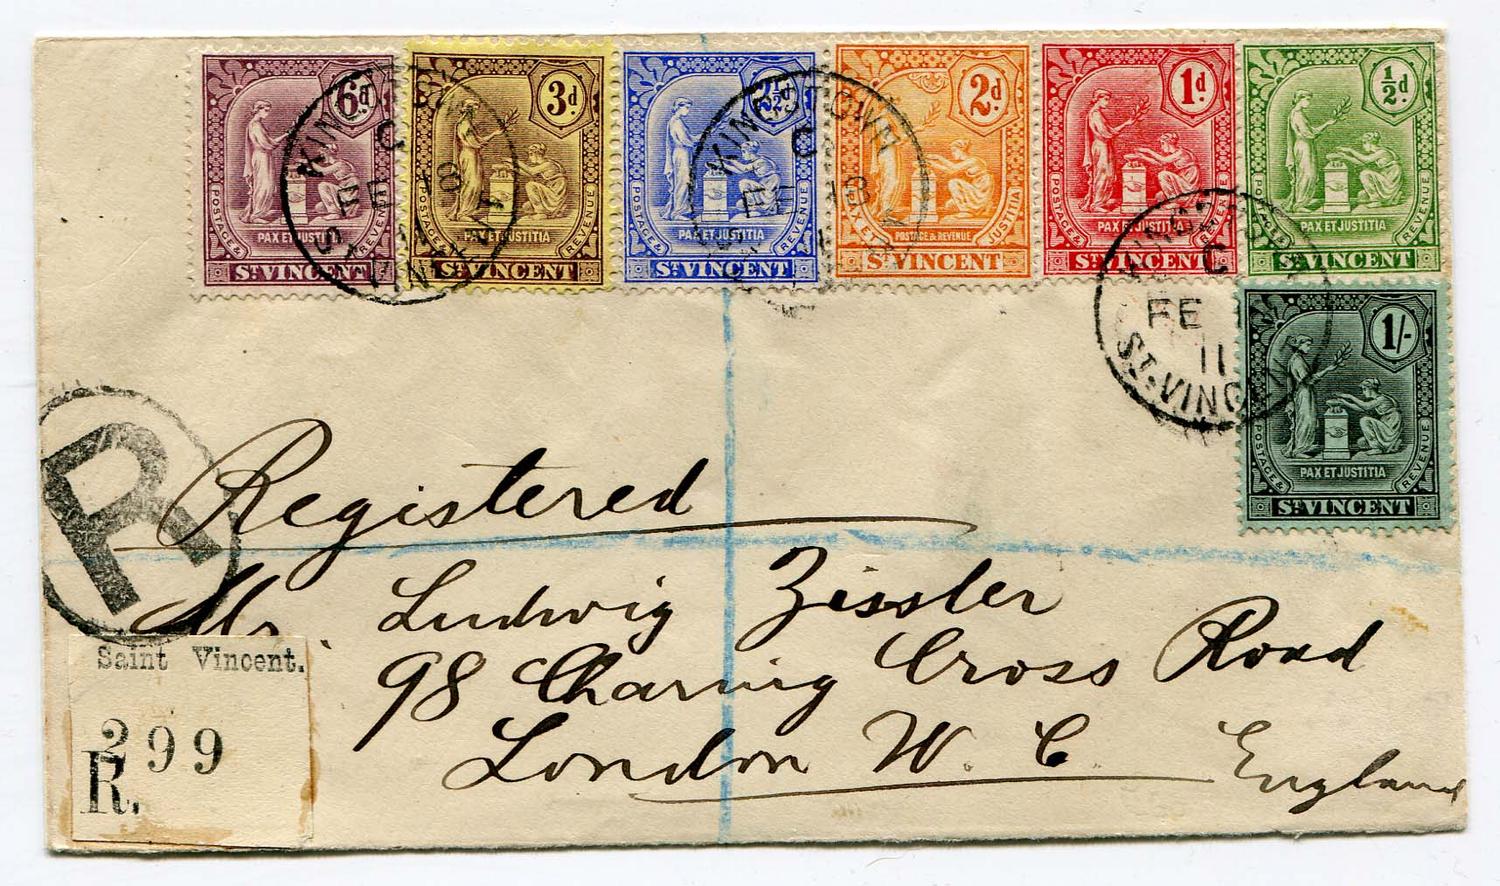 6d
POSTAGE &
REVENUE
PAX ET JUSTITIA
ST. VINCENT
3d
POSTAGE &
REVENUE
PAX ET JUSTITIA
ST. VINCENT
2½d
POSTAGE &
REVENUE
PAX ET JUSTITIA
ST. VINCENT
2d
PAX ET
JUSTITIA
POSTAGE & REVENUE
ST. VINCENT
1d
POSTAGE &
REVENUE
PAX ET JUSTITIA
ST. VINCENT
½d
POSTAGE &
REVENUE
PAX ET JUSTITIA
ST. VINCENT
1/-
POSTAGE &
REVENUE
PAX ET JUSTITIA
ST. VINCENT
KINGSTOWN
C
FE 18
11
ST. VINCENT
KINGSTOWN
C
FE 18
11
KINGSTOWN
C
FE
11
ST. VINCENT
R
Registered
Mr. Ludwig Zissler
98 Charing Cross Road
London W. C. England
Saint Vincent.
299
R.